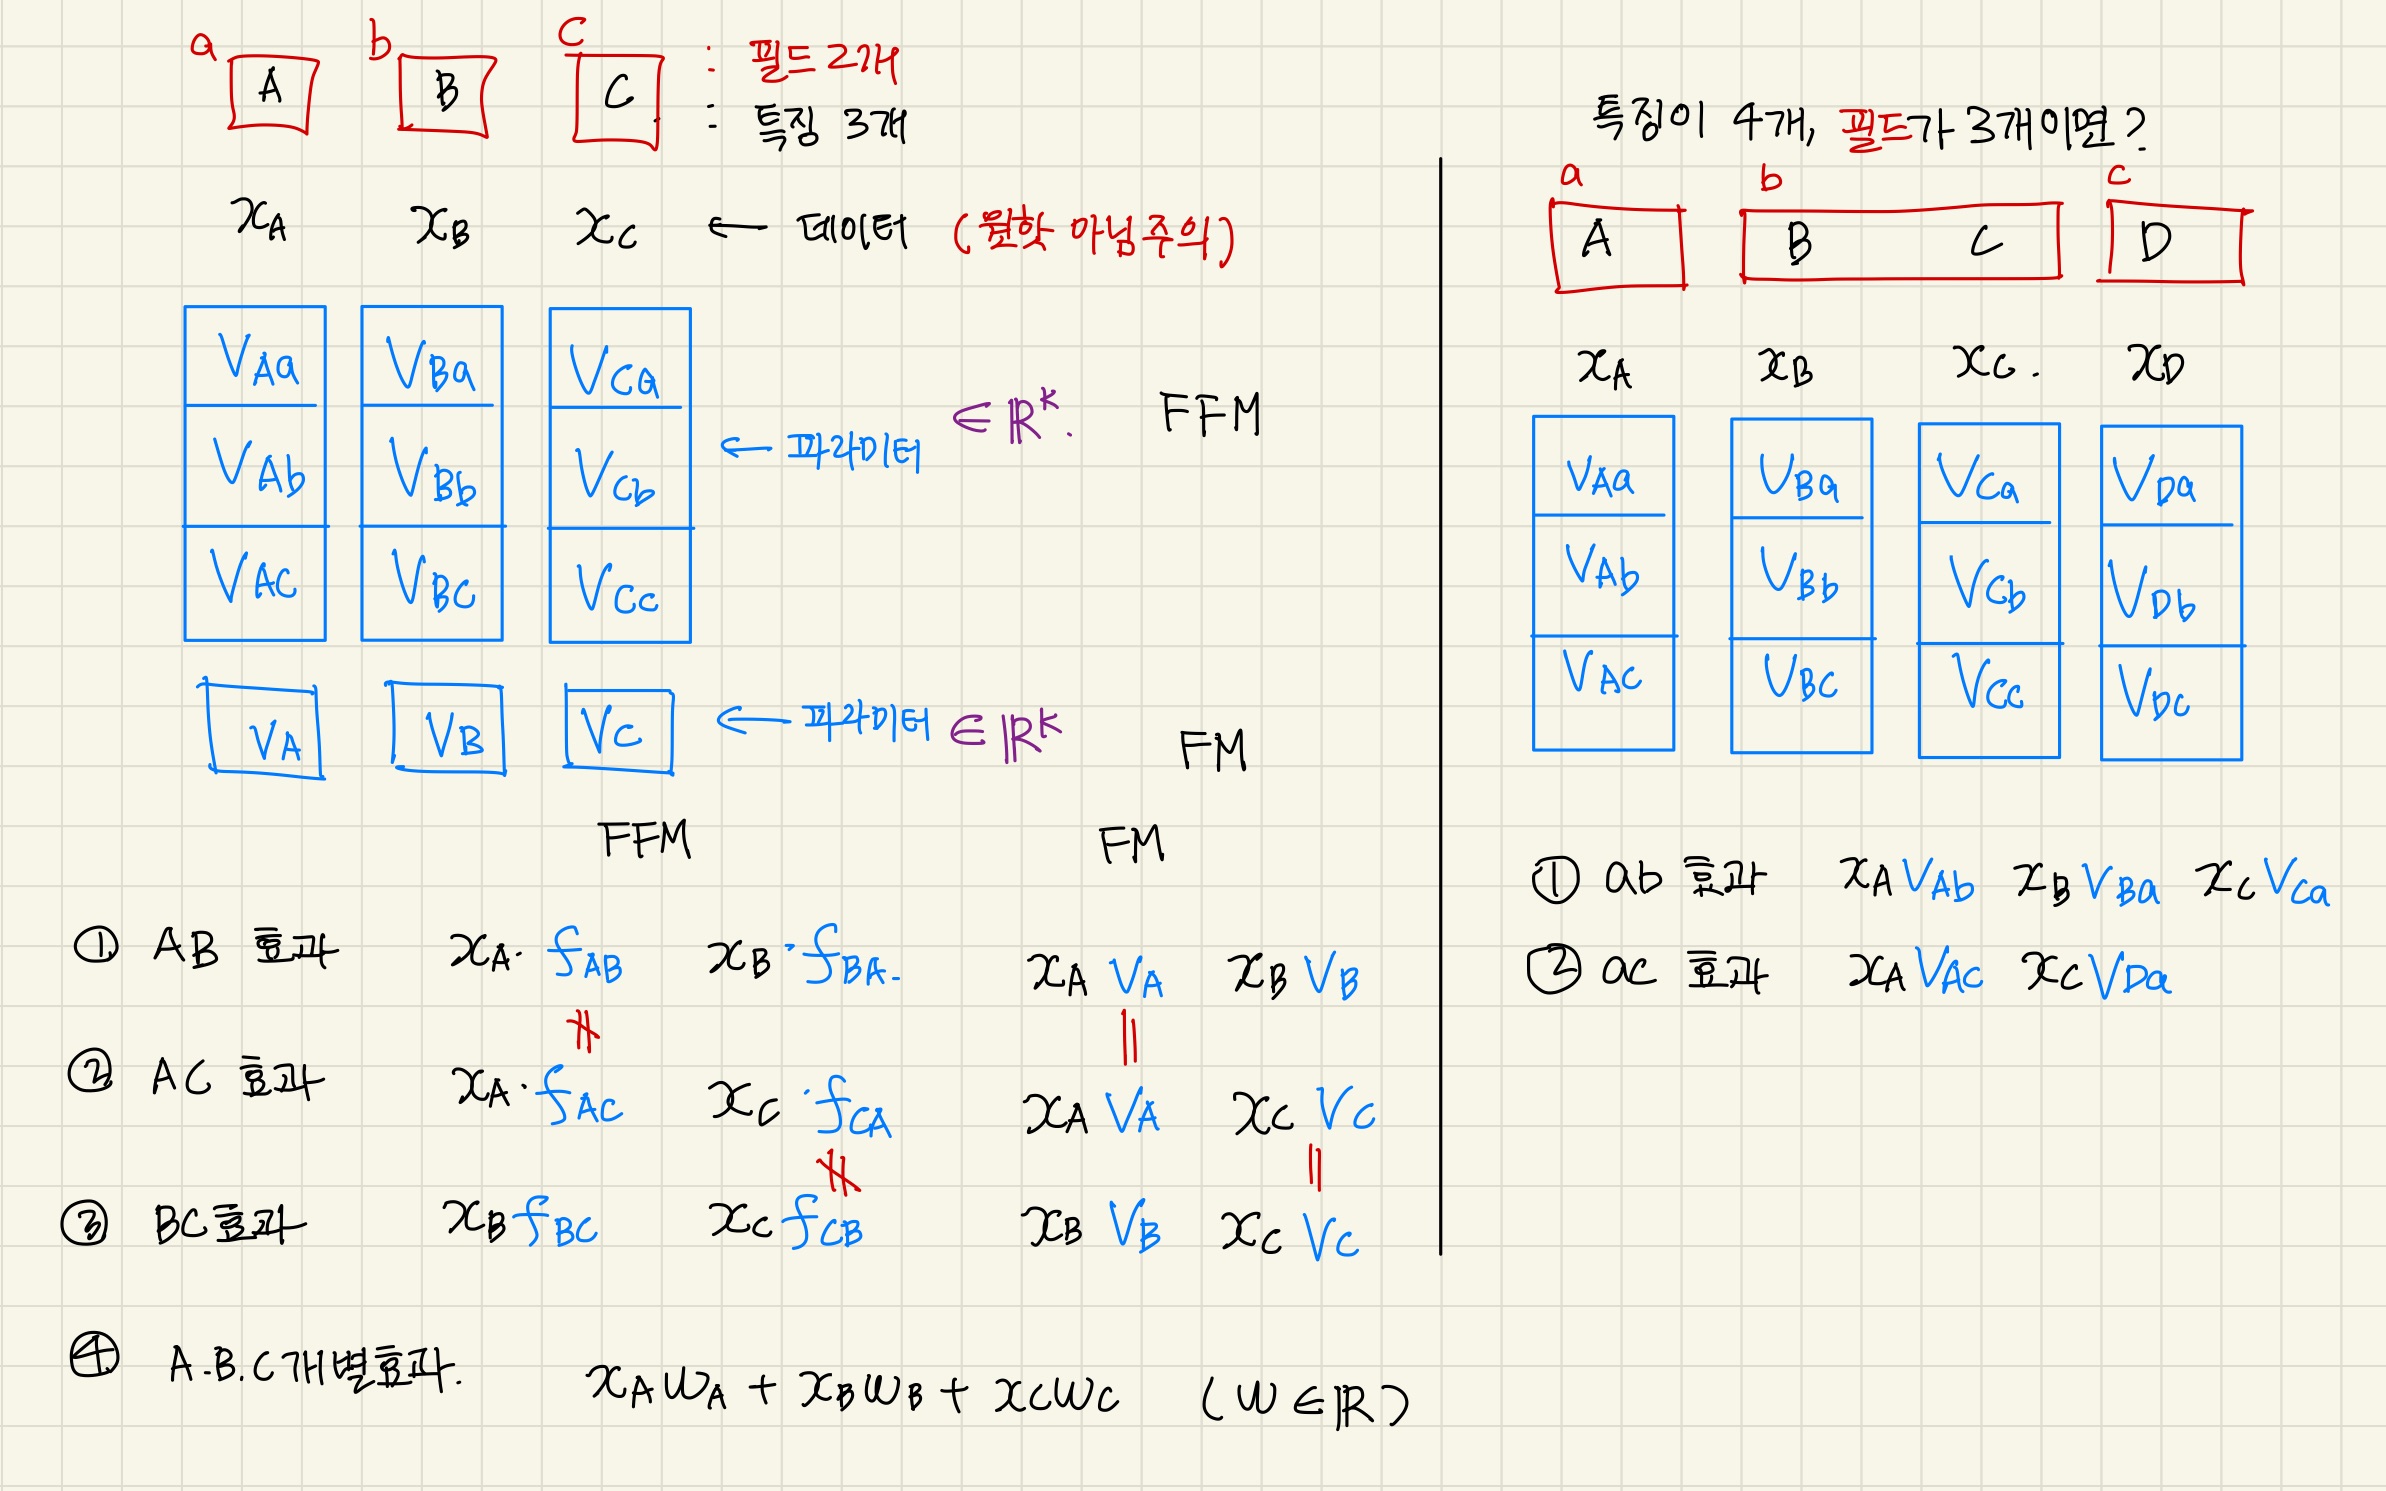 a b c : 필드 2개
A B C : 특징 3개
x_A x_B x_C ← 데이터 (원핫 아님 주의)
V_Aa V_Ba V_Ca
∈ ℝ^K. FFM
V_Ab V_Bb V_Cb ← 파라미터
V_Ac V_Bc V_Cc
V_A V_B V_C ← 파라미터 ∈ ℝ^K FM
FFM FM
① AB 효과 x_A· f_AB x_B· f_BA. x_A V_A x_B V_B
≠ =
② AC 효과 x_A· f_AC x_C· f_CA x_A V_A x_C V_C
≠ =
③ BC 효과 x_B f_BC x_C f_CB x_B V_B x_C V_C
④ A.B.C 개별효과. x_A w_A + x_B w_B + x_C w_C (w ∈ ℝ)
특징이 4개, 필드가 3개이면?
a b c
A B C D
x_A x_B x_C. x_D
V_Aa V_Ba V_Ca V_Da
V_Ab V_Bb V_Cb V_Db
V_Ac V_Bc V_Cc V_Dc
① ab 효과 x_A V_Ab x_B V_Ba x_C V_Ca
② ac 효과 x_A V_Ac x_C V_Da